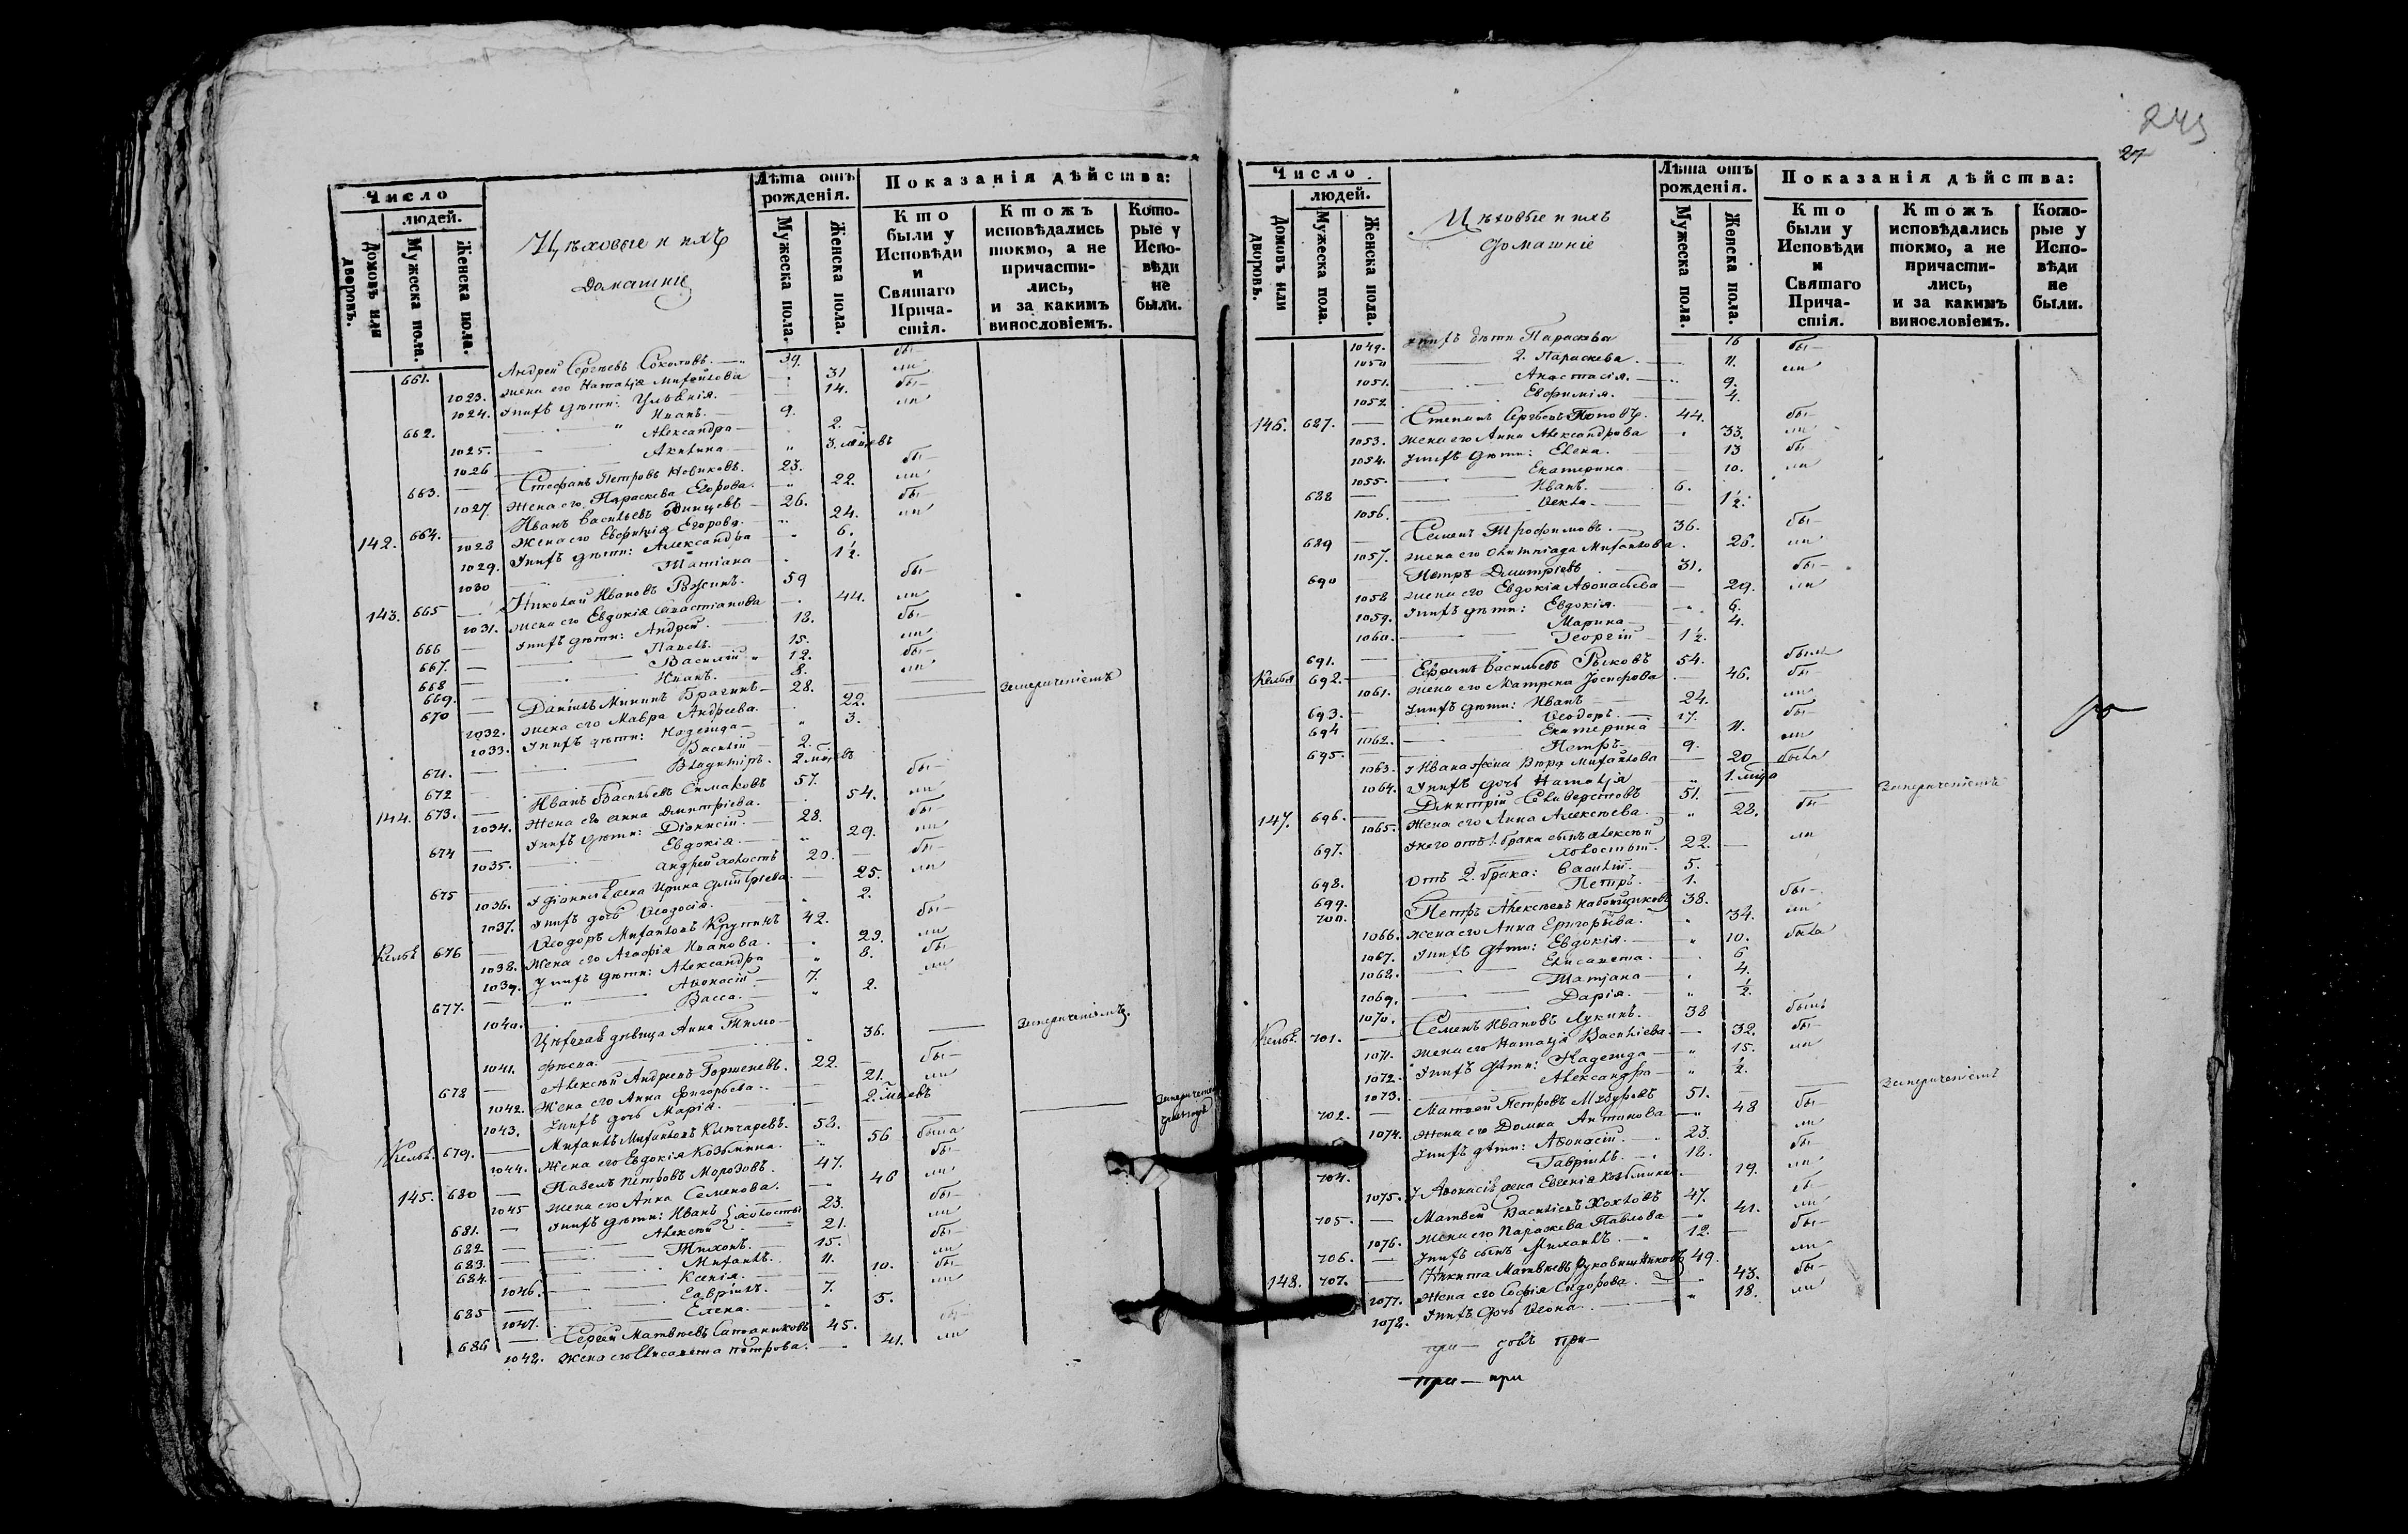 Число
людей.
Домовъ или дворовъ.
Мужеска пола.
Женска пола.
Цѣховые и ихъ
домашніе
Лѣта отъ рожденія.
Мужеска пола.
Женска пола.
Показанія дѣйства:
Кто были у Исповѣди и Святаго Причастія.
Ктожъ исповѣдались токмо, а не причастились, и за какимъ винословіемъ.
Которые у Исповѣди не были.
661. Андрей Сергѣевъ Соколовъ. 39. бы-
1023. жена его Наталія Михайлова 31 ли
1024. У нихъ дѣти: Уліянія. 14. бы-
662. Иванъ. 9. ли
1025. Александра 2.
1026 Акилина
663. Стефанъ Петровъ Новиковъ. 23. бы-
1027. Жена его Параскева Егорова. 22. ли
142. 664. Иванъ Васильевъ Одинцевъ 26. бы-
1028 Жена его Евфимія Егорова. 24. ли
1029. У нихъ дѣти: Александра 6.
1030 Татіана 1½.
143. 665 Николай Ивановъ 59 бы-
1031. Жена его Евдокія Севастіанова 44. ли
666 У нихъ дѣти: Андрей 18. бы-
667. Павелъ. 15. ли
668 Василій 12. бы-
669. Иванъ. 8. ли
670 Даніилъ Мининъ Брагинъ 28.
1032. Жена его Мавра Андреева. 22.
1033. У нихъ дѣти: Надежда 3.
671. Василій 2.
672 Владиміръ.
144. 673. Иванъ Васильевъ Симаковъ 57. бы-
1034. Жена его Анна Дмитріева. 54. ли
674 У нихъ дѣти: Діонисій. 28. бы-
1035. Евдокія. 29. ли
675 Андрей холостъ 20. бы-
1036. У Діонисія жена Ирина Дмитріева. 25. ли
1037. У нихъ дочь Ѳеодосія. 2.
Кельѣ 676 Ѳеодоръ Михайловъ Крутинъ 42. бы-
1038. Жена его Агафія Иванова. 29. ли
1039. У нихъ дѣти: Александра 8. бы-
677. Аѳонасій 7. ли
1040. Васса. 2.
1041. дѣвица Анна Тимо- 36.
фѣева.
678 Алексѣй Андреевъ Горшеневъ. 22. бы-
1042. Жена его Анна Григорьева. 21. ли
1043. У нихъ дочь Марія.
Кельѣ 679. Михаилъ Михайловъ Ключаревъ. 58.
1044. Жена его Евдокія Козьмина. 56 была
145. 680 Павелъ Петровъ Морозовъ. 47. бы-
1045 Жена его Анна Семенова. 46 ли
681. У нихъ дѣти: Иванъ } холосты 23. бы-
682 Алексѣй 21. ли
683. Тихонъ. 15. бы-
684. Михаилъ. 11. ли
1046. Ксенія. 10. бы-
685 Гавріилъ. 7. ли
1047. Елена. 5.
686 Сергей Матвѣевъ 45.
1048. Жена его Елисавета Петрова. 41. ли
245
27
Число
людей.
Домовъ или дворовъ.
Мужеска пола.
Женска пола.
Цѣховые и ихъ
домашніе
Лѣта отъ рожденія.
Мужеска пола.
Женска пола.
Показанія дѣйства:
Кто были у Исповѣди и Святаго Причастія.
Ктожъ исповѣдались токмо, а не причастились, и за какимъ винословіемъ.
Которые у Исповѣди не были.
1049. У нихъ дѣти Параскева 16 бы-
1050 2. Параскева. 11. ли
1051. Анастасія. 9.
1052 Евфимія. 4.
146. 687. Степанъ Сергѣевъ Поповъ. 44. бы-
1053. Жена его Анна Александрова 33. ли
1054. У нихъ дѣти: Елена. 13 бы-
1055. Екатерина 10. ли
688 Иванъ. 6.
1056. Ѳекла. 1½.
689 Семенъ Трофимовъ. 36. бы-
1057. Жена его Олимпіада Михайлова. 26. ли
690 Петръ Дмитріевъ 31. бы-
1058 Жена его Евдокія Аѳонасьева 29. ли
1059. У нихъ дѣти: Евдокія. 6.
1060. Марина 4.
691. Георгій 1½.
Кельѣ 692. Ефремъ Васильевъ Рыковъ 54. былъ
1061. Жена его Матрена Іосифова 46. бы-
693. У нихъ дѣти: Иванъ 24. ли
694 Ѳеодоръ. 17. бы-
1062. Екатерина 11. ли
695. Петръ 9.
1063. У Ивана жена Вѣра Михайлова 20 была
1064. У нихъ дочь Наталія
147. 696. Дмитрій Селиверстовъ 51.
1065. Жена его Анна Алексѣева. 28. бы-
697. У него отъ 1. брака сынъ Алексѣй
холостый. 22. ли
698. Отъ 2. брака: Василій. 5.
699. Петръ. 1.
700. Петръ Алексѣевъ Набойщиковъ 38. бы-
1066. Жена его Анна Григорьева. 34. ли
1067. У нихъ дѣти: Евдокія. 10. была
1068. Елисавета. 6
1069. Татіана 4.
1070. Дарія. ½.
Кельѣ. 701. Семенъ Ивановъ Лукинъ. 38 былъ
1071. Жена его Наталія Васильева. 32. бы-
1072. У нихъ дѣти: Надежда 15. ли
1073. Александра ½.
702. Матвей Петровъ 51.
1074. Жена его Домна Антипова 48 бы-
У нихъ дѣти: Аѳонасій. 23. ли
704. Гавріилъ. 18. бы-
1075. У Аѳонасія жена Евгенія Козьмина 19. ли
705. Матвей Васильевъ Хохловъ 47. бы-
1076. Жена его Параскева Павлова 41. ли
706. У нихъ сынъ Михаилъ. 12. бы-
148. 707. Никита Матвѣевъ Рукавишниковъ 49. ли
1077. Жена его Софія Сидорова. 43. бы-
1078. У нихъ дочь Ѳеона. 18. ли
при- при-
при- при